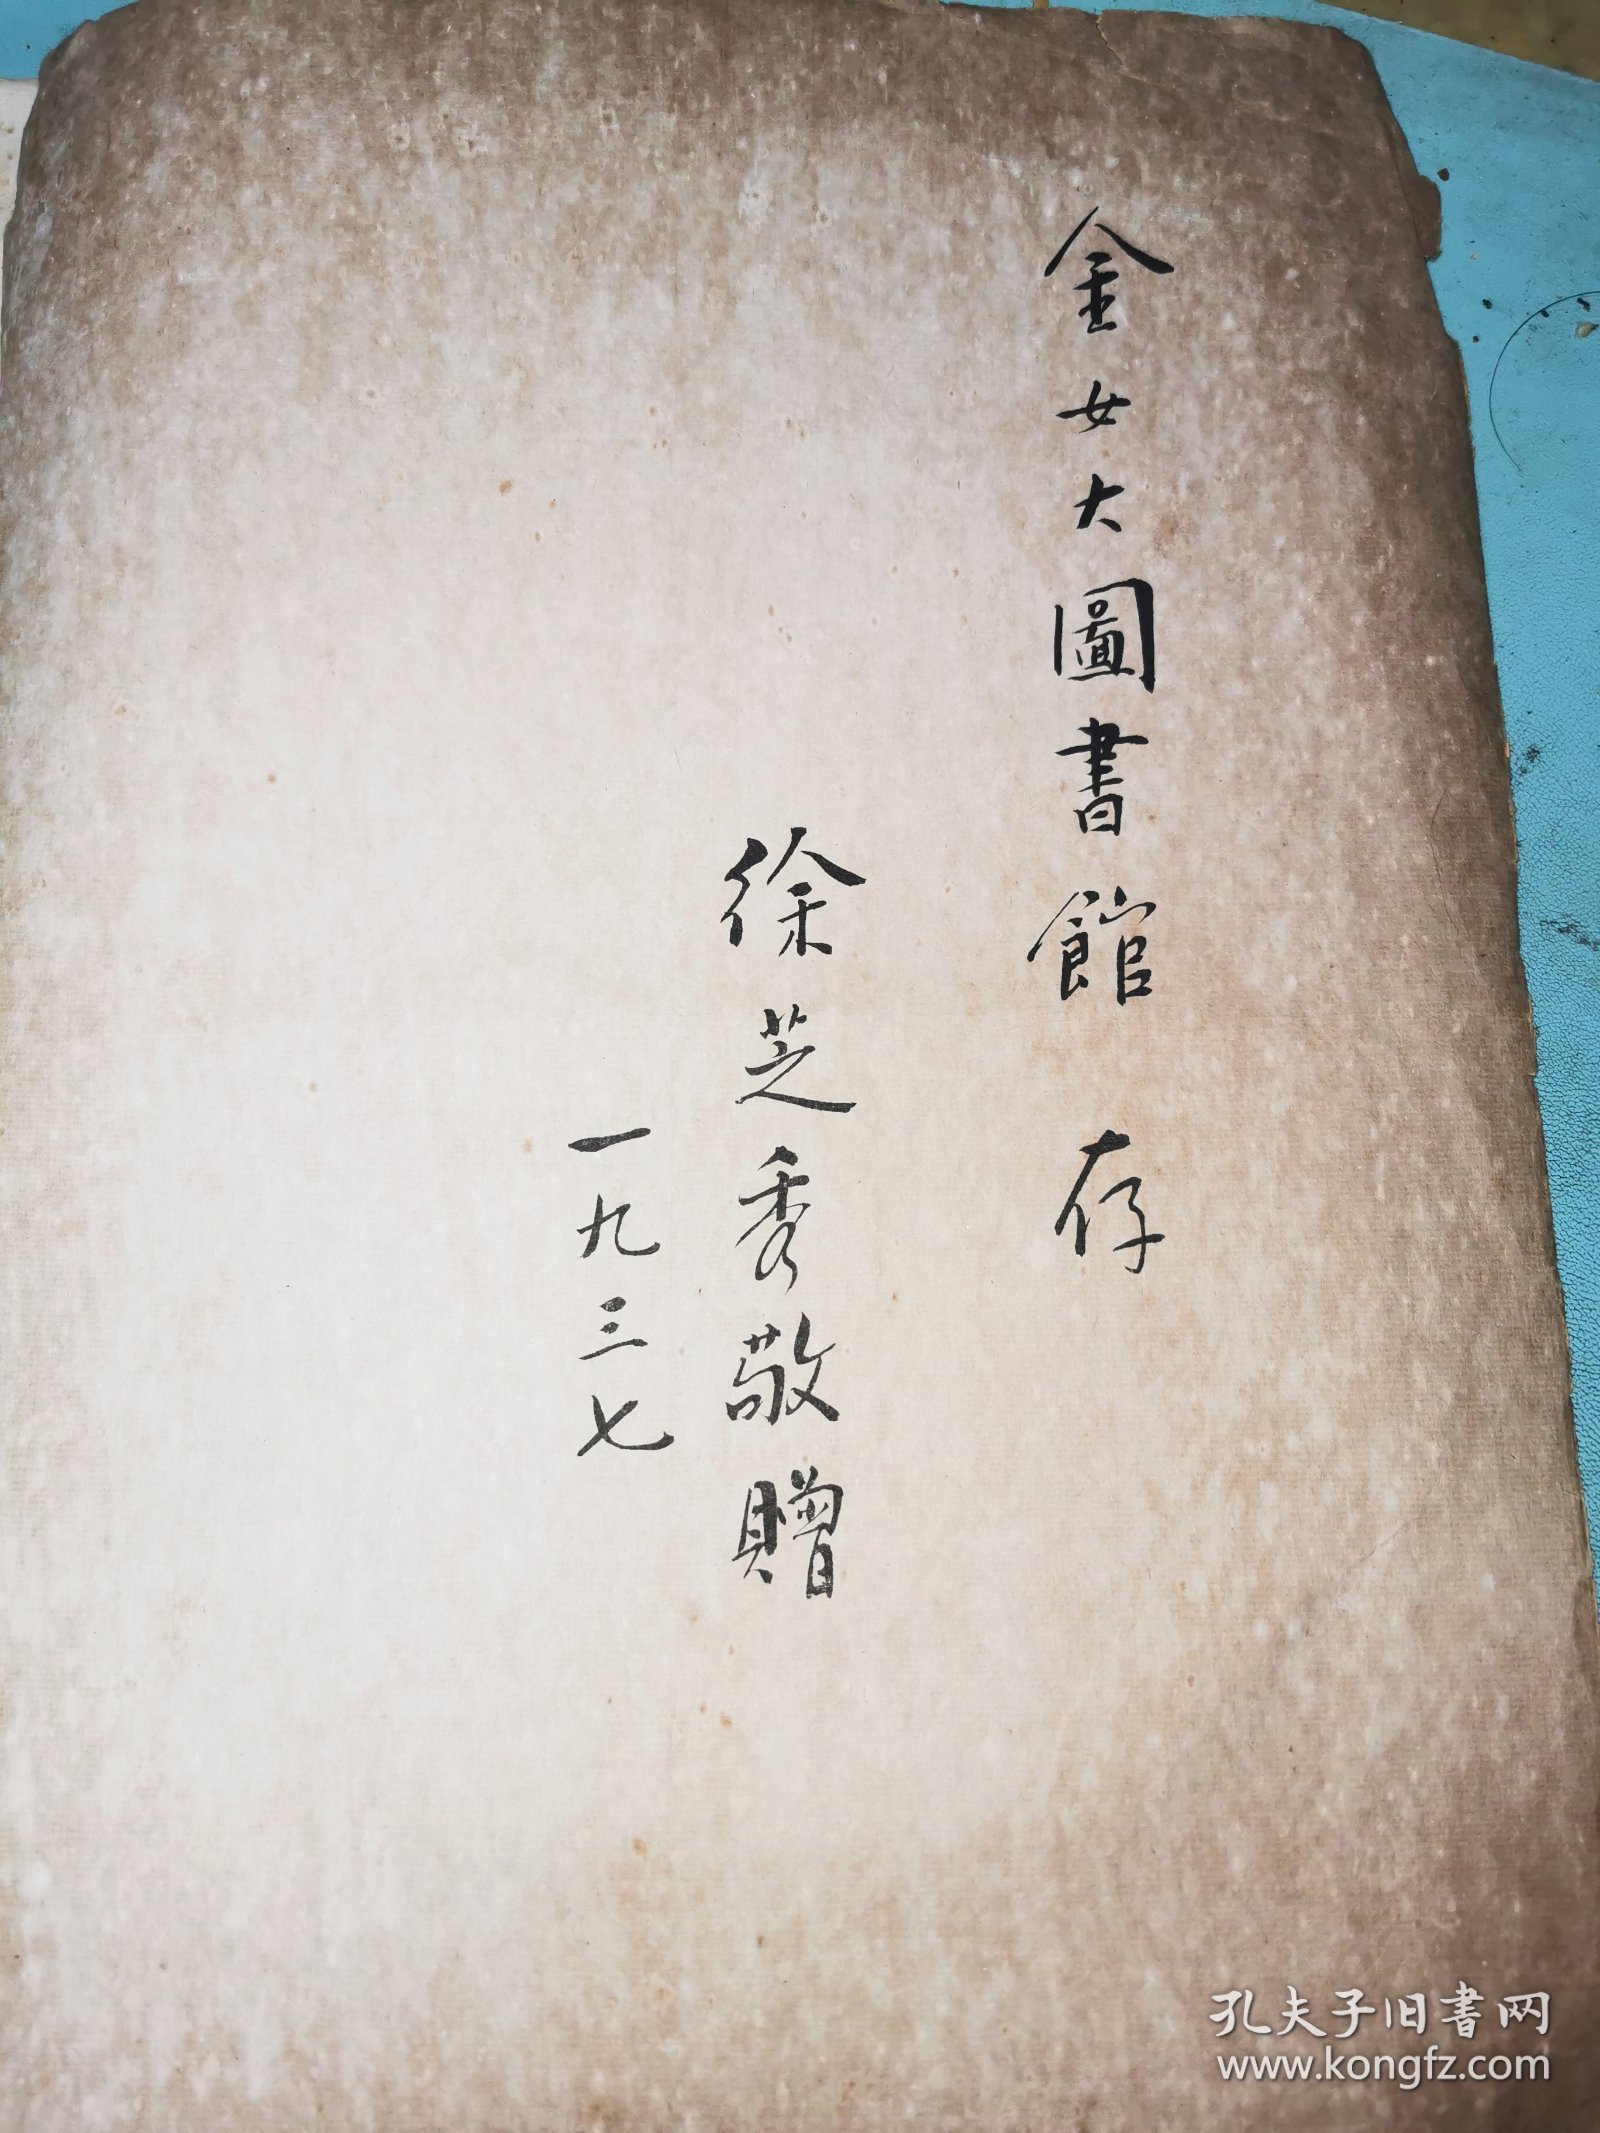 金女大圖書館 存
徐芝秀敬贈
一九三七
孔夫子旧书网
www.kongfz.com